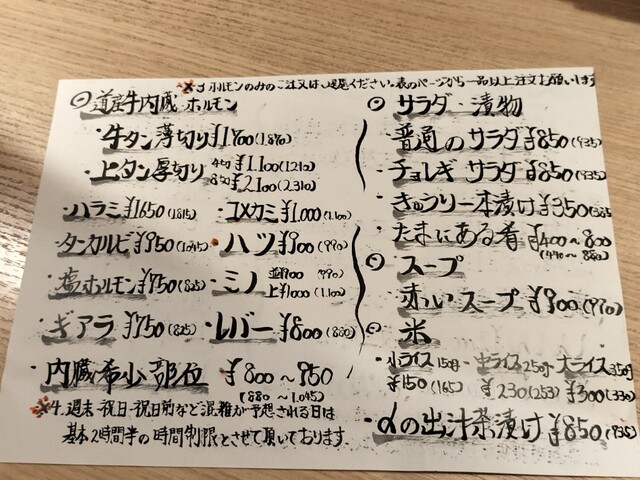 ※3 ホルモンのみのご注文はご遠慮ください。表のページから一品以上注文お願いします
道産牛内臓・ホルモン
・牛タン薄切り ¥1,700 (1,870)
・上タン厚切り 4切 ¥1,100 (1,210)
8切 ¥2,100 (2,310)
・ハラミ ¥1650 (1,815) ・コメカミ ¥1,000 (1,100)
・タンカルビ ¥950 (1,045) ・ハツ ¥900 (990)
・塩ホルモン ¥750 (825) ・ミノ 並¥900 (990)
上¥1000 (1,100)
・ギアラ ¥750 (825) ・レバー ¥800 (880)
・内臓希少部位 ¥800〜950
(880〜1,045)
※4. 週末・祝日・祝日前など混雑が予想される日は
基本2時間半の時間制限とさせて頂いております。
サラダ・漬物
・普通のサラダ ¥850 (935)
・チョレギサラダ ¥850 (935)
・きゅうり一本漬け ¥350 (385)
・たまにある肴 ¥400〜800
(440〜880)
スープ
・赤いスープ ¥900 (990)
米
・小ライス150g ・中ライス250g ・大ライス350g
¥150 (165) ¥230 (253) ¥300 (330)
・αの出汁茶漬け ¥850 (935)